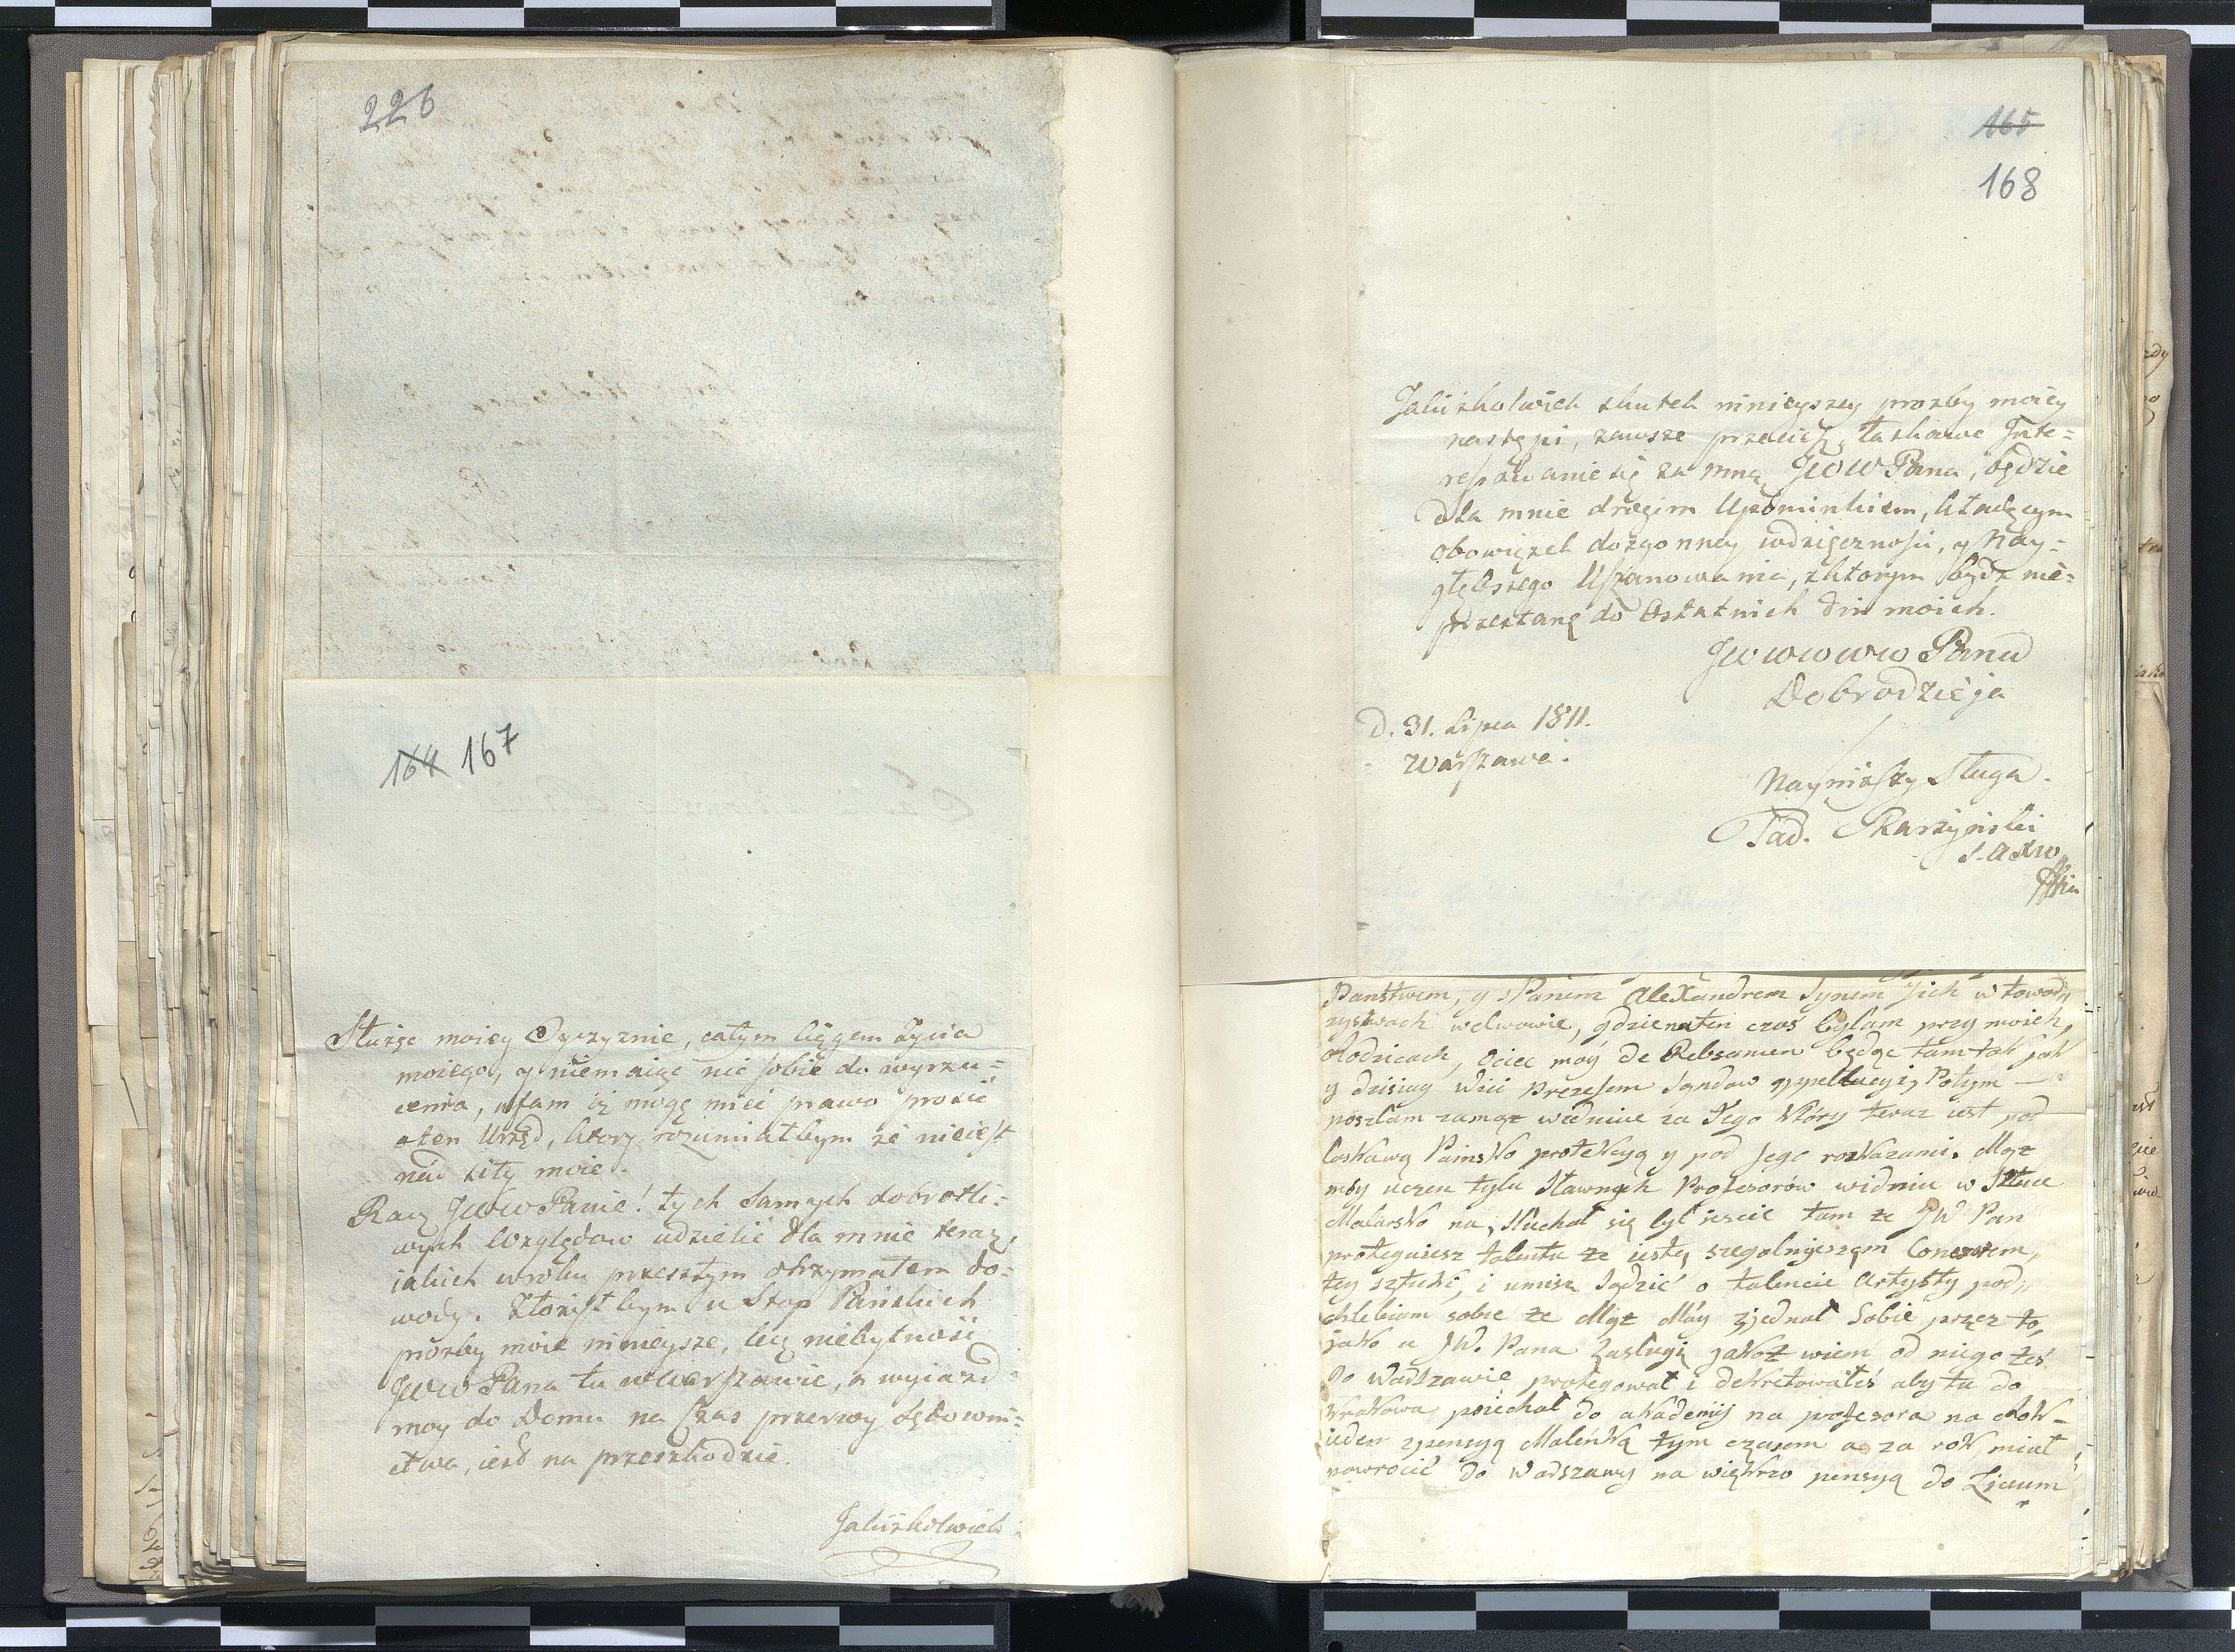 226
164 167
Służąc moiey Oyczyznie, całym ciągem życia
moiego, y niemaiąc nic sobie do wyrzu=
cenia, ufam iż mogę mieć prawo prosić
oten Urząd, ktory rozumiałbym że nieiest
nad siły moie.
Racz JWW Panie! tych samych dobrotli=
wych Względow udzielić dla mnie teraz,
iakich wroku przeszłym otrzymałem do=
wody. Złożyłbym u Stop Pańskich
prożby moie ninieysze, lecz niebytność
JWW Pana tu w Warszawie, a wyiazd
moy do Domu na Czas przerwy Sądowni=
ctwa, iest na przeszkodzie.
Jakiżkolwiek
165
168
Jakiżkolwiek skutek ninieyszey prozby moiey
nastąpi, zawsze przecież łaskawe Inte=
ressowanie się za mną JWW Pana, będzie
dla mnie drogim Upominkiem, kładącym
obowiązek dozgonney wdzięczności, y Nay=
głębszego Uszanowania, zktorym bydź nie=
przestanę do Ostatnich dni moich.
JWWWW Pana
Dobrodzieja
D. 31. Lipca 1811.
Warszawa.
Nayniższy Sługa.
Tad. Skarżyński
Państwem, y z Panem Alexandrem Synem Jich w towarz,
zystwach welwowie, gdzie naten czas byłam przy moich,
Rodzicach, Ociec moy de Rebsamen będąc tam tak jak
y dzisiay Wici Prezesem Sądow appellacyi, Potym —
poszłam zamąż wedniue za Tego Który teraz iest pod
łaskawą Painsko protekcyą y pod Jego rozkazami. Mąż
móy uczen tylu Sławnych Profesorów widniu w Sztuce
Malarsko na, słuchał się był ieszcie tam że JW Pan
protegujesz talenta że iestą szegolniejszem Coneserem,
tey sztuki, i umisz sądzić o talencie artysty pod,,
chlebiam sobie że Mąż Móy zjednał Sobie przez to,
jako u JW. Pana Zasługi jakoż wiem od niego żeś
go Warszawie protegował i dekretowałeś aby tu do
krakowa poiechał do akademij na profesora na Rok –
ieden zpensyą Maleńką tym czasem a za rok miał
powrocić do Warszawy na większo pensyą do Liceum